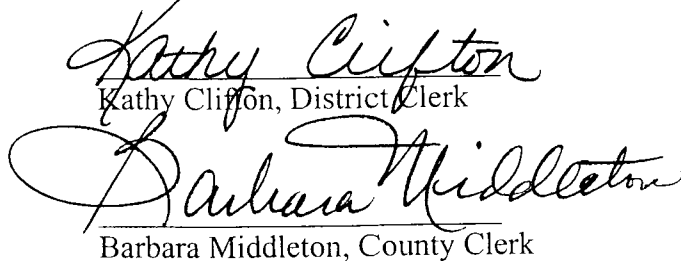 Kathy Clifton
Kathy Clifton, District Clerk
Barbara Middleton
Barbara Middleton, County Clerk